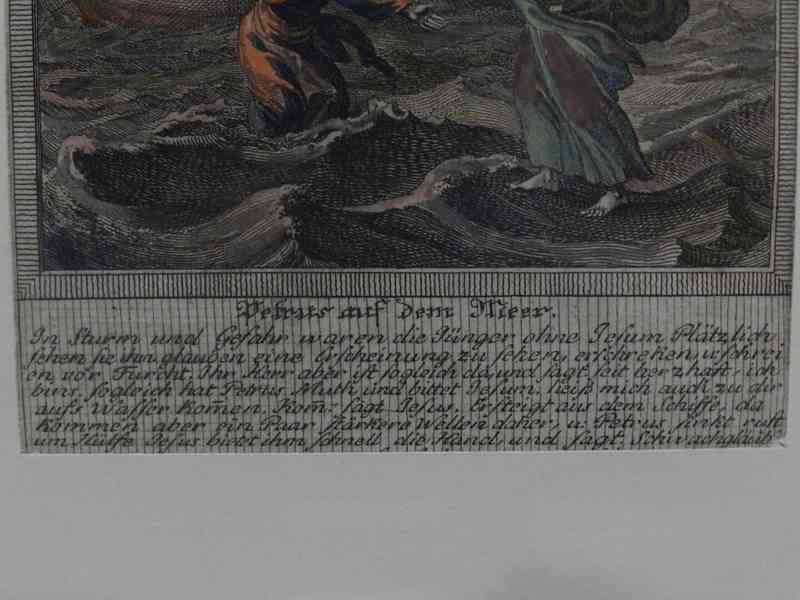 Petrus auf dem Meer.
In Sturm und Gefahr waren die Jünger ohne Jesum Plötzlich
sehen sie ihn, glauben eine Erscheinung zu sehen, erschreken, u. schrei
en vor Furcht. Ihr Herr aber ist sogleich da, und sagt, seit herzhaft, ich
bins, sogleich hat Petrus Muth und bittet Jesum, heiß mich auch zu dir
aufs Wasser kom̄en, Kom̄, sagt Jesus, Er steigt aus dem Schiffe, da
kommen aber ein Paar stärkere Wellen daher, u. Petrus sinkt ruft
um Hülffe Jesus bietet ihm schnell die Hand, und sagt, Schwachgläub